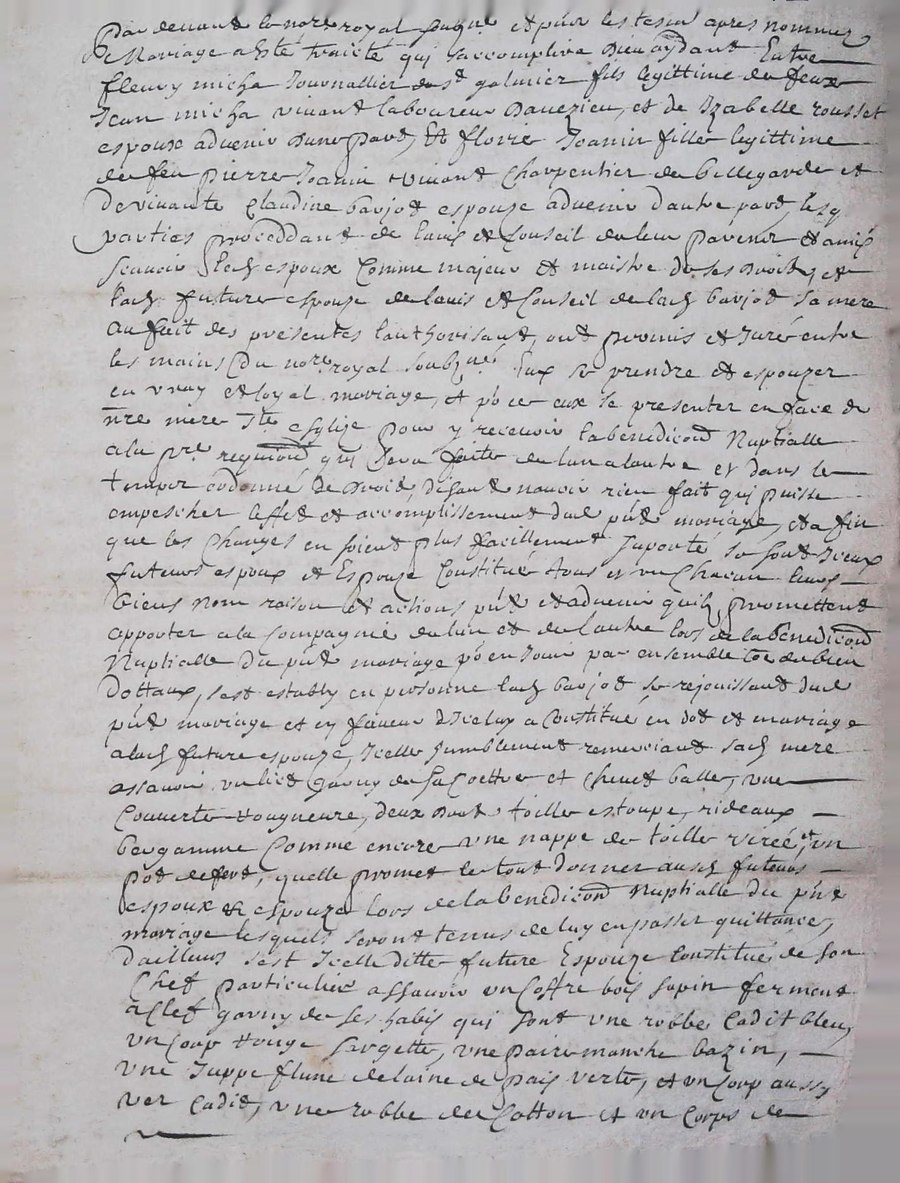 Par devant le no.re royal soubz.né et p^nts les tesm. apres nommez
Mariage a esté traicté qui s'accomplira Dieu aydant Entre
fleury micha Journallier de s.t galmier fils legittime de feux
Jean micha vivant laboureur Davezieu, et de Izabelle rousset
espoux advenir d'une pard, Et floire Joanin fille legittime
de feu pierre Joanin vivant Charpentier de bellegarde et
de vivante Claudine barjot espouze advenir d'autre pard, lesq
parties proceddant de l'avis et Conseil de leur parents et amis
scavoir led. espoux Comme majeur et maistre de ses droits, et
lad. future espouze de l'avis et Conseil de lad. barjot sa mere
au fait des presentes l'authorisant, ont promis et Juré entre
les mains du no.re royal soubz.né Eux se prendre et espouzer
en vray et loyal mariage, et p^r ce eux se presenter en face de
n.re mere S.te esglize pour y recevoir la benediction Nuptialle
a la p.re requi.on qui sera faite de l'un a l'autre et dans le
temps ordonné de droit, disant n'avoir rien fait qui puisse
empescher l'effet et accomplissement dud. p^nt mariage, et afin
que les Charges en soient plus facillement suporté se sont Iceux
futeurs espoux et Espouze Constitué tous et un Chacun leurs
biens nom raison et actions p^nt et advenir qu'ils promettent
apporter a la Compagnie de l'un et de l'autre lors de la benedi.on
Nuptialle du p^nt mariage p^r en Jouir par ensemble Co.e de bien
dottaux, s'est estably en personne lad. barjot se rejouissant dud.
p^nt mariage et en faveur d'Iceluy a Constitué en dot et mariage
a lad. future espouze, Icelle humblement remerciant sad. mere
assavoir un lict garny de sa Coettre et Chevet balle, une
Couverte Rougneure, deux drat toille estoupe, rideaux
bergamme Comme encore une nappe de toille virée, et un
pot de fert, quelle promet le tout donner ausd. futeurs
espoux et espouze lors de la benedi.on Nuptialle du p^nt
mariage lesquels seront tenus de luy en passer quittance,
d'ailleurs s'est Icelle ditte future Espouze Constitué de son
Chef particulier assavoir un Coffre bois sapin fermant
a Clef garny de ses habis qui sont une robbe Cadit bleu,
un Corp Rouge sargette, une paire manche bazin,
une Juppe flune de laine de pais verte, et un Corp aussy
ver Cadit, une robbe de Cotton et un Corps de